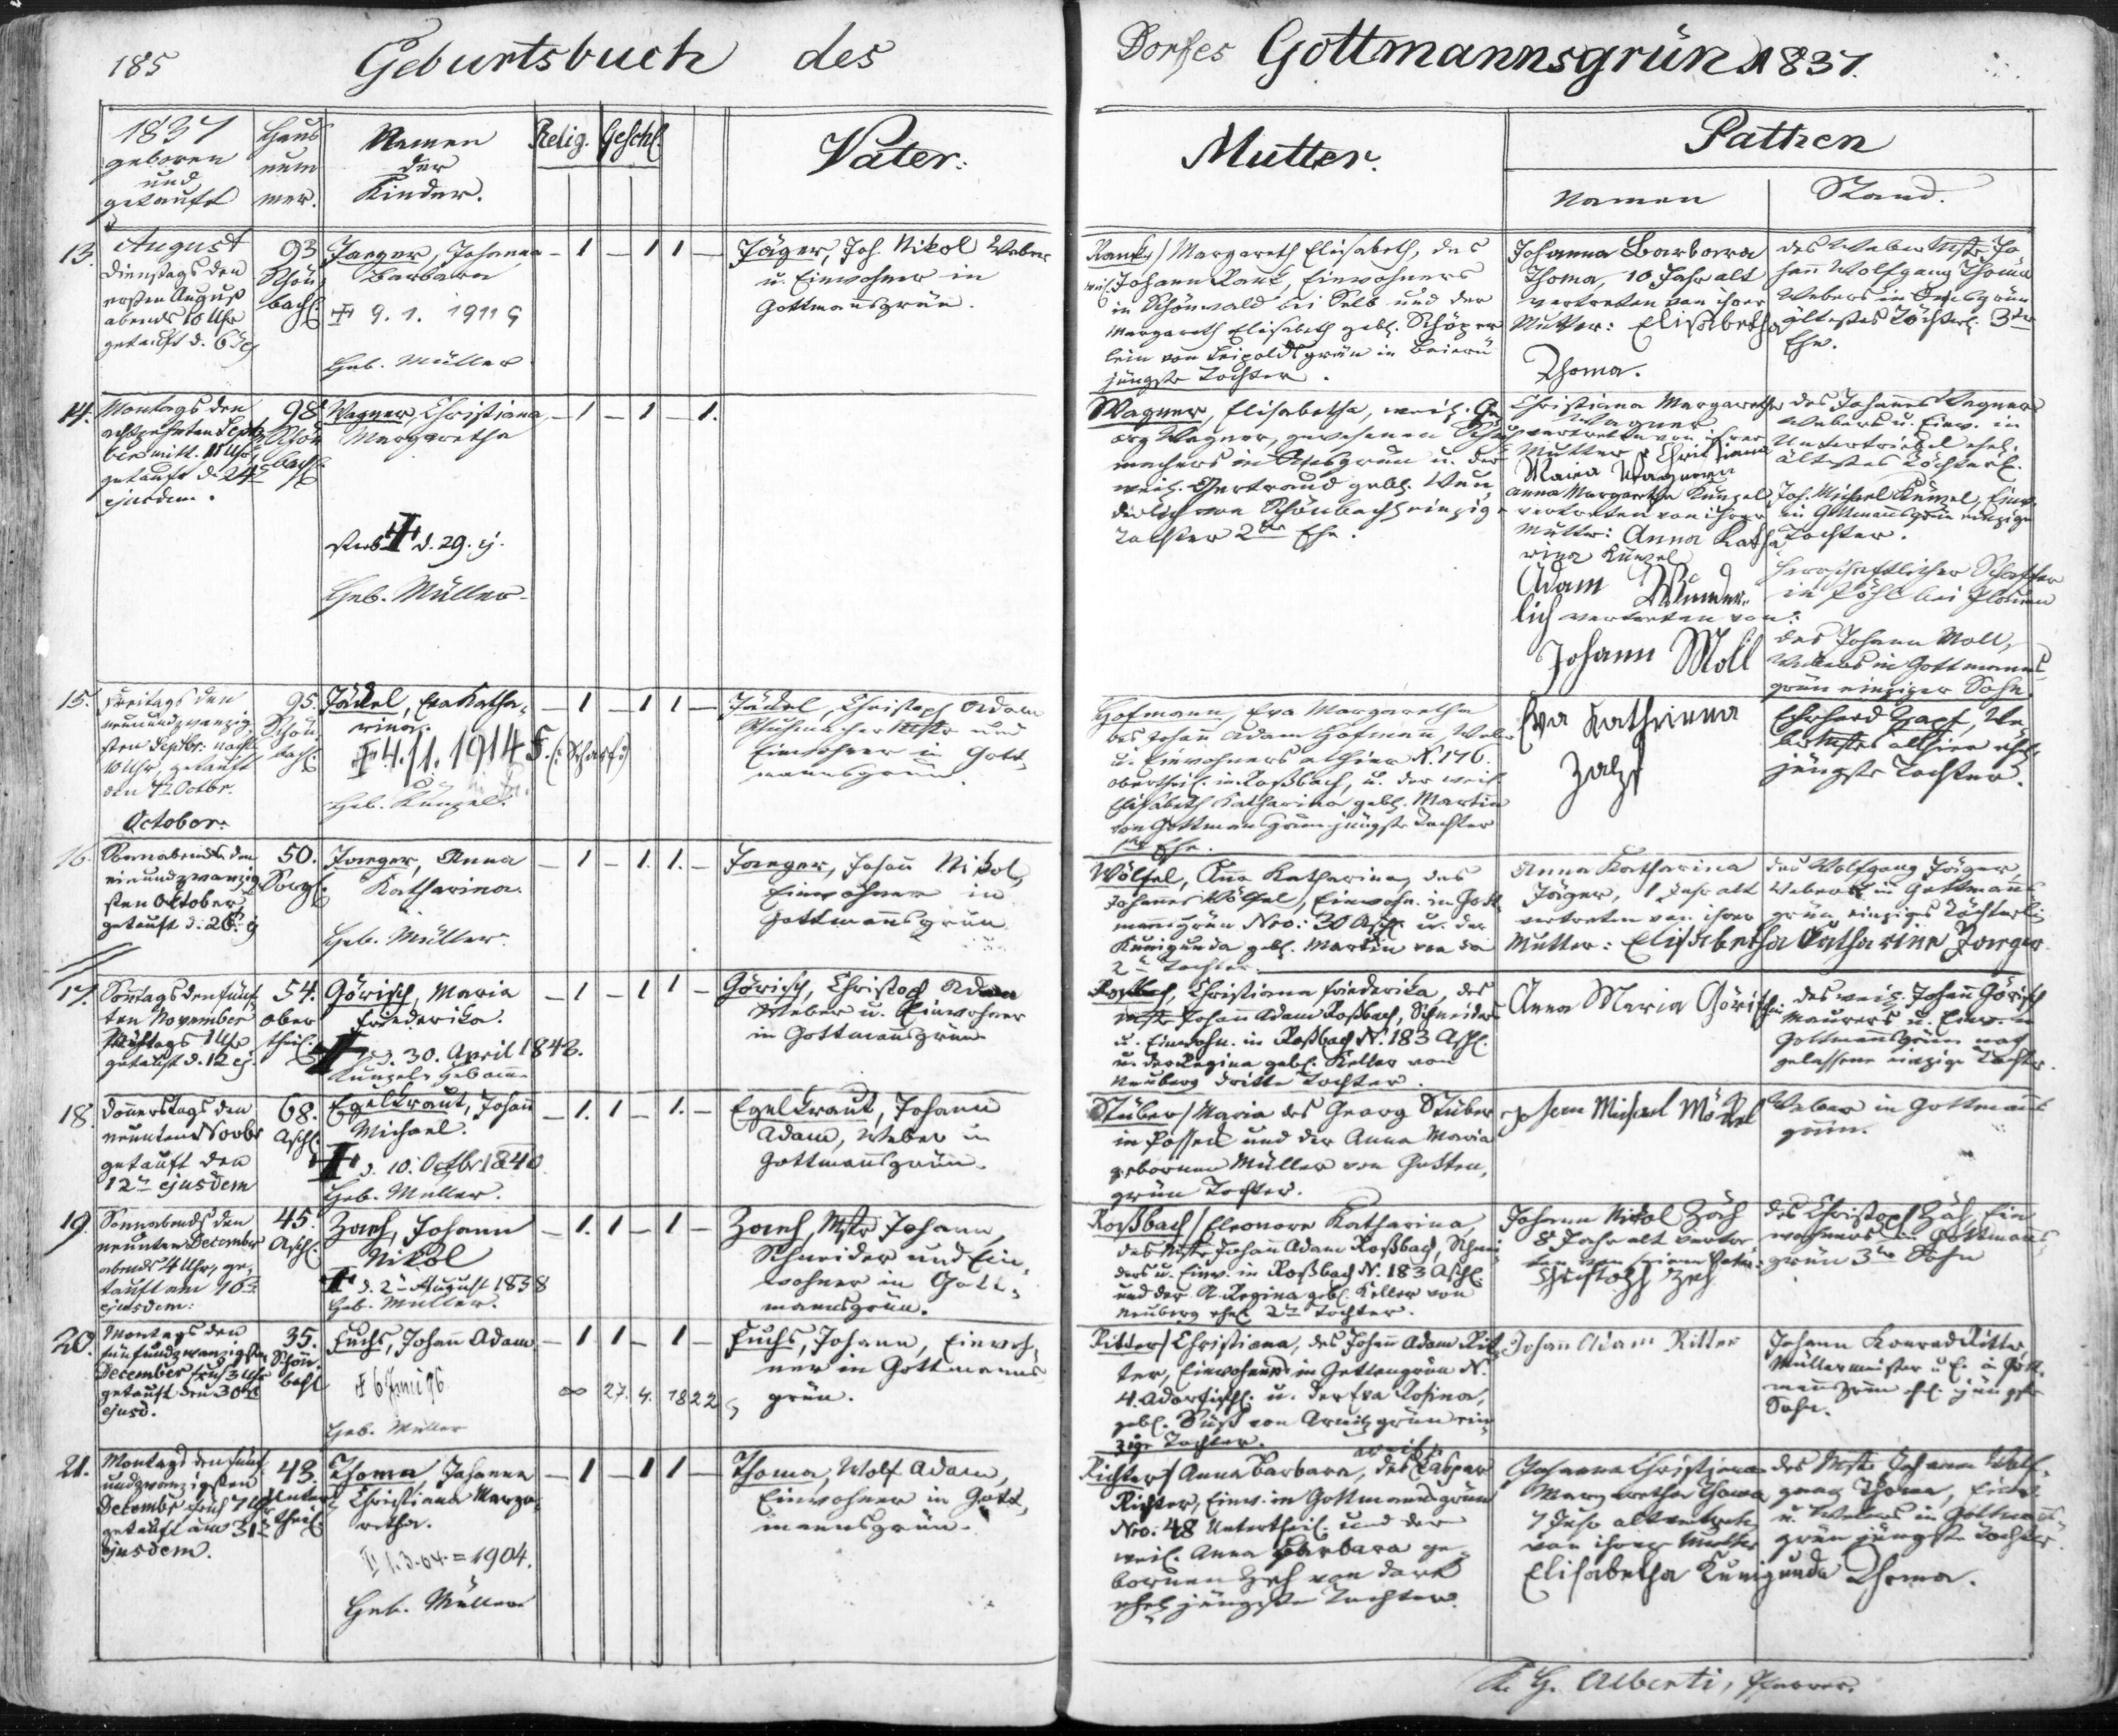 185
Geburtsbuch des
Dorfes Gottmannsgrün 1837.
1837
geboren
und
getauft
Haus
num
mer.
Namen
der
Kinder.
Relig.
Geschl.
Vater.
Mutter.
Pathen
Namen
Stand.
13.
August
Dienstags den
ersten August
abends 10 Uhr
getauft d. 6
93
Schön
bach
Jaeger, Johanna
Barbara
9. 1. 1911
Heb. Müller
– 1 – 1 1 –
Jäger, Joh. Nikol Weber
u. Einwohner in
Gottmansgrün.
Rank / Margareth Elisabeth, des
Johann Rank, Einwohners
in Schönwald bei Selb und der
Margareth Elisabeth geb.
lein von Leipoldsgrün in Baiern
jüngste Tochter.
Johanna Barbara
Thoma, 10 Jahr alt
vertreten von ihrer
Mutter: Elisabetha
Thoma.
des Weber Mstr. Jo
hann Wolfgang Thoma
Webers in
ältestes Töchterl. 3ter
Ehe.
14.
Montags den
achtzehnten Septe
mitt. 11 Uhr
getauft d. 24
ejusdem.
98
Schön
bach
Wagner, Christiana
Margaretha
starb d. 29. ej.
Heb. Müller
– 1 – 1 – 1.
Wagner, Elisabetha, weil. Ge
org Wagner, gewesenen
machers in u. der
weil. Gertraud geb. Wun
derlich von Schönbach einzige
Tochter 2ter Ehe.
Christiana Margaretha
Wagner
vertreten von ihrer
Mutter: Christiana
Maria Wagner
Anna Margaretha Künzel
vertreten von ihrer
Mutter: Anna Katha
rina Künzel
Adam Wunder
lich vertreten von:
Johann Moll
des Johannes Wagner
Webers u. Einw. in
Untertriebel ehel.
ältestes Töchterl.
Joh. Michael Künzel, Einw.
in Gottmansgrün einzige
Tochter.
herrschaftlicher Schaffer
in Pöhl bei Plauen
des Johann Moll,
Webers in Gottmanns
grün einziger Sohn.
15.
Freitags den
neunundzwanzig
sten Septbr. nachts
10 Uhr, getauft
den 7 Octbr.
95.
Schön
bach
Jäckel, Eva Katha
rina.
4. 11. 1914
Heb. Künzel.
– 1 – 1 1 –
Jäckel, Christoph Adam
Schuhmacher Mstr. und
Einwohner in Gott
mannsgrün.
Hofmann, Eva Margaretha
des Johann Adam Hofmann, Web
u. Einwohners allhier N. 176.
obertheil. in Roßbach, u. der weil.
Elisabeth Katharina geb. Martin
von Gottmansgrün jüngste Tochter
Ehe.
Eva Kathrinna
Zapf
Erhard Zapf, We
ber Mstrs. allhier ehel.
jüngste Tochter.
October.
16.
Sonnabends den
einundzwanzig
sten October
getauft d. 26.
50.
Sorg.
Jaeger, Anna
Katharina.
Heb. Müller.
– 1 – 1. 1. –
Jaeger, Johann Nikol,
Einwohner in
Gottmansgrün
Wölfel, Anna Katharina, des
Johannes Wölfel, Einwohn. in Gott
mannsgrün Nro: 30 Asch. u. der
Kunigunda geb. Martin von da
2te Tochter.
Anna Katharina
Jäger, 1 Jahr alt
vertreten von ihrer
Mutter: Elisabetha Catharina Jaeger
des Wolfgang Jäger,
Webers in Gottmans
grün einziges Töchterl.
17.
Sontags den fünf
ten November
Mittags 1 Uhr
getauft d. 12 ej.
54.
ober
theil.
Görisch, Maria
Friederika.
d. 30. April 1842.
Künzel Hebamme
– 1 – 1 1 –
Görisch, Christoph Adam
Weber u. Einwohner
in Gottmansgrün
Roßbach, Christiana Friederika, des
Mstr. Johann Adam Roßbach, Schneider
u. Einwohn. in Roßbach N. 183 Asch.
u. der Regina geb. Keller von
Neuberg dritte Tochter.
Anna Maria Görisch
des weil. Johann Görisch
Maurers u. Einw. in
Gottmansgrün nach
gelassene einzige Tochter.
18.
Donnerstags den
neunten Novbr
getauft den
12 ejusdem
68.
Asch.
Egelkraut, Johann
Michael.
d. 10. Octbr 1840
Heb. Müller.
– 1. 1 – 1. –
Egelkraut, Johann
Adam, Weber in
Gottmannsgrün.
Stüber / Maria des Georg Stüber
in Posseck und der Anna Maria
gebornen Müller von Gotten
grün Tochter.
Johann Michael Möckel
Weber in Gottmans
grün.
19.
Sonnabends den
neunten December
abends 4 Uhr, ge
tauft am 16
ejusdem:
45.
Asch.
Zaeh, Johann
Nikol
d. 2 August 1838
Heb. Müller.
– 1. 1 – 1 –
Zaeh, Mstr. Johann,
Schneider und Ein
wohner in Gott
mannsgrün.
Roßbach / Eleonore Katharina,
des Mstr. Johann Adam Roßbach, Schnei
ders u. Einw. in Roßbach N. 183 Asch.
und der A. Regina geb. Keller von
Neuberg ehel. 2te Tochter.
Johann Nikol Zäh
8 Jahr alt vertre
ten von seinem Vater:
Christoph Zeh
des Christoph Zäh, Ein
wohners in Gottmanns
grün 3ter Sohn
20.
Montags den
fünfundzwanzigsten
December früh 3 Uhr
getauft den 30
ejusd.
35.
Schön
bach
Fuchs, Johann Adam
6 Juni 96
Heb. Müller
– 1 1 – 1 –
∞ 27. 4. 1822
Fuchs, Johann, Einwoh
ner in Gottmanns
grün.
Ritter / Christiana, des Johann Adam Rit
ter, Einwohners in Gettengrün N.
4. Adorfisch u. der Eva Rosina,
geb. Süß von Arnitzgrün ein
zige Tochter.
Johann Adam Ritter
Johann Konrad Ritter
Müllermeister u. E. in Gott
mannsgrün ehl. jüngster
Sohn.
21.
Montags den fünf
undzwanzigsten
Decembr früh 7 Uhr
getauft am 31
ejusdem.
43.
Unter
theil
Thoma, Johanna
Christiana Marga
retha.
1. 3. 04 = 1904.
Heb. Müller
– 1 – 1 1 –
Thoma, Wolf Adam,
Einwohner in Gott
mannsgrün.
Richter / Anna Barbara, des weil. Caspar
Richter, Einw. in Gottmannsgrün
Nro: 48 Untertheil. und der
weil. Anna Barbara ge
bornen Zeh von dort
ehel. jüngste Tochter.
Johanna Christiana
Margaretha Thoma
7 Jahr alt vertreten
von ihrer Mutter
Elisabetha Kunigunda Thoma.
des Mstr. Johann Wolf
gang Thoma, Einw.
u. Webers in Gottmans
grün jüngste Tochter.
Alberti, Pfarrer.